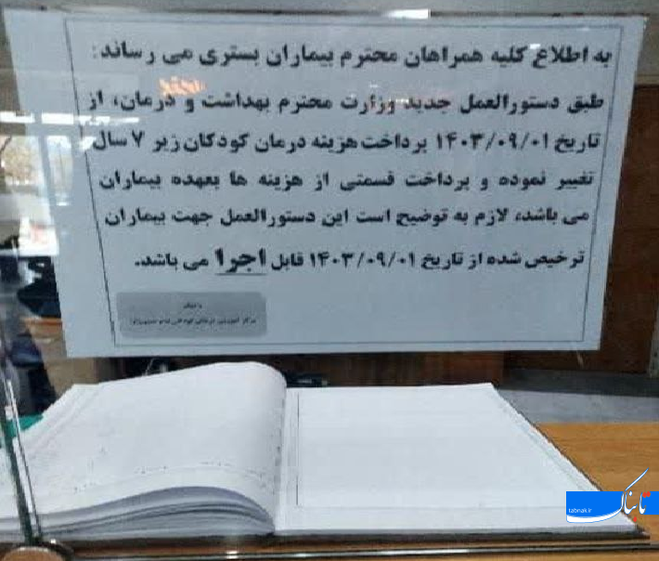 به اطلاع کلیه همراهان محترم بیماران بستری می رساند:
طبق دستورالعمل جدید وزارت محترم بهداشت و درمان، از
تاریخ ۱۴۰۳/۰۹/۰۱ پرداخت هزینه درمان کودکان زیر ۷ سال
تغییر نموده و پرداخت قسمتی از هزینه ها بعهده بیماران
می باشد، لازم به توضیح است این دستورالعمل جهت بیماران
ترخیص شده از تاریخ ۱۴۰۳/۰۹/۰۱ قابل اجرا می باشد.
تابناک
tabnak.ir